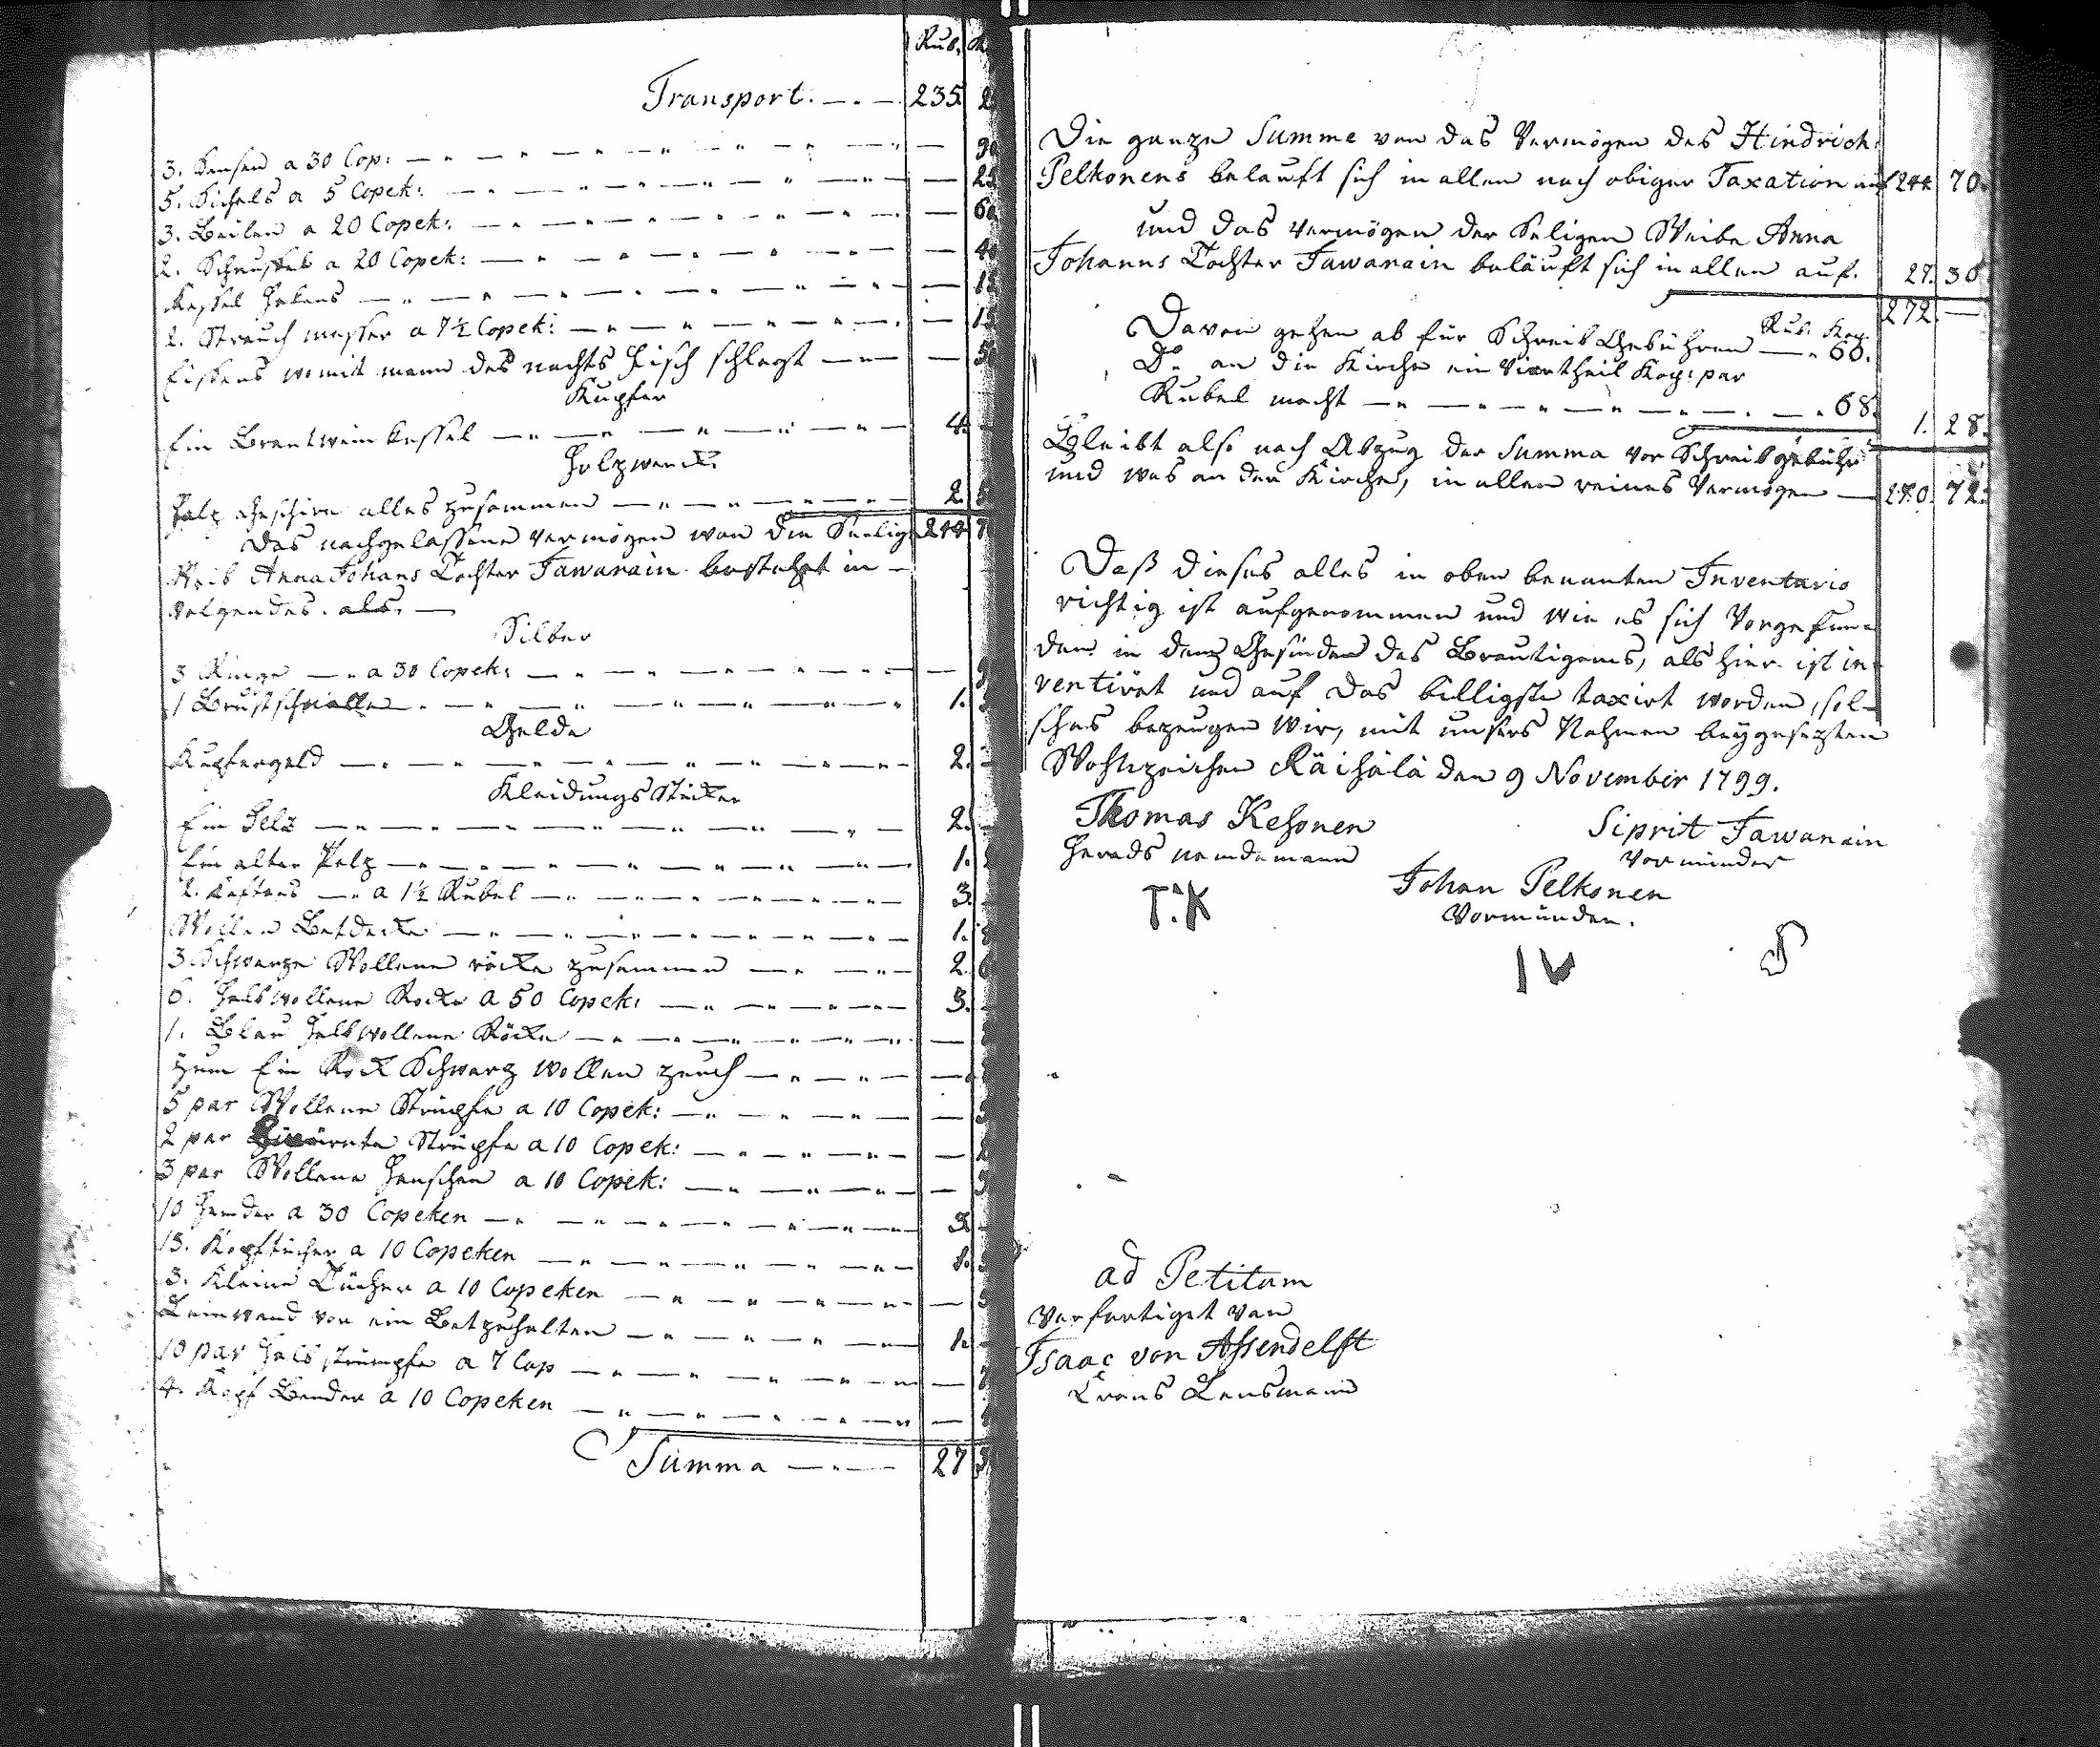 Rub. K
Transport. 235. 2
3. Sensen a 30 Cop: — 90
5. Sichels a 5 Copek: — 25
3. Beilen a 20 Copek: — 60
2. Schauffel a 20 Copek: — 40
Kessel Hakens — 1
2. Strauch messer a 7½ Copek: — 15
Eissens womit mann des nachts Fisch schlegt — 5
Kupfer
Ein Brantwein kessel 4.
Holzwerck.
Holz Geschirr alles zusammen 2. 5
Das nachgelassene Vermögen von die Seelig 244 7
Weib Anna Johans Tochter Tawanain bestehet in
volgendes. als.
Silber
3 Ringe a 30 Copek: — 9
1 Brustschnalle 1.
Gelde
Kupfergeld 2.
Kleidungs Stücken
Ein Pelz 2.
Ein alter Pelz 1.
2. Kaftans a 1½ Rubel 3.
Wollen Betdecke 1.
3. Schwarze Wollene röcke zusammen 2.
6. Halbwollene Rocke a 50 Copek: 3.
1. Blau Halbwollene Röcke —
zum Ein Rock Schwarz wollen zeuch —
5 par Wollene Strümpfe a 10 Copek: —
2 par Strümpfe a 10 Copek: —
3 par Wollene Hanschen a 10 Copek: —
10 Hemder a 30 Copeken 3.
13. Kopftücher a 10 Copeken 1.
3. Kleine Tücher a 10 Copeken —
Leinwand von ein Betzuhalten 1.
10 par Halb strümpfe a 7 Cop —
4. Kopf Bender a 10 Copeken —
Summa 27 3
Die ganze Summe von das Vermögen des Hindrich:
Pelkonens belauft sich in allen nach obiger Taxation auf 244 70.
und das vermögen der Seligen Weibe Anna
Johanns Tochter Tawanain beläuft sich in allen auf. 27. 30
272. —
Davon gehen ab für Schreib Gebühren Rub. Kop. — 60.
Do an die Kirche ein Viertheil Kop: par
Rubel macht — 68. 1. 28.
Bleibt also nach Abzug der Summa vor Schreibgebühr
und was an der Kirche, in allen reines Vermögen — 270. 72.
Daß dieses alles in oben benanten Inventario
richtig ist aufgenommen und wie es sich Vorgefun-
den in denz Gesinden des Breutigams, als hier ist in-
ventirt und auf das billigste taxirt worden, sol-
ches bezeugen Wir, mit unsers Nahmen beygesezten
Wohlzeichen Räisälä den 9 November 1799.
Thomas Kesonen
Herads nemdemann
T.K
Siprit Tawanain
Vormünder
Johan Pelkonen
Vormünder.
ad Petitum
Verfertiget von
Isaac von Assendelft
Crons Lensmann